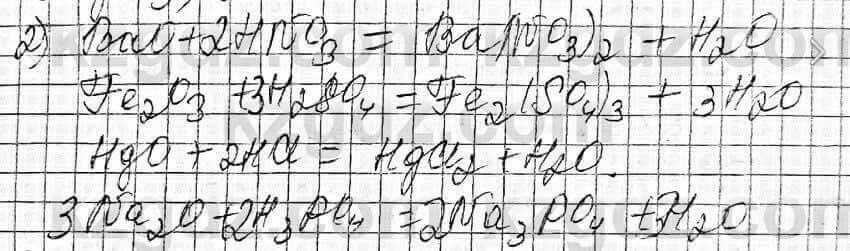 2) BaO + 2HNO3 = Ba(NO3)2 + H2O
Fe2O3 + 3H2SO4 = Fe2(SO4)3 + 3H2O
HgO + 2HCl = HgCl2 + H2O.
3Na2O + 2H3PO4 = 2Na3PO4 + 3H2O